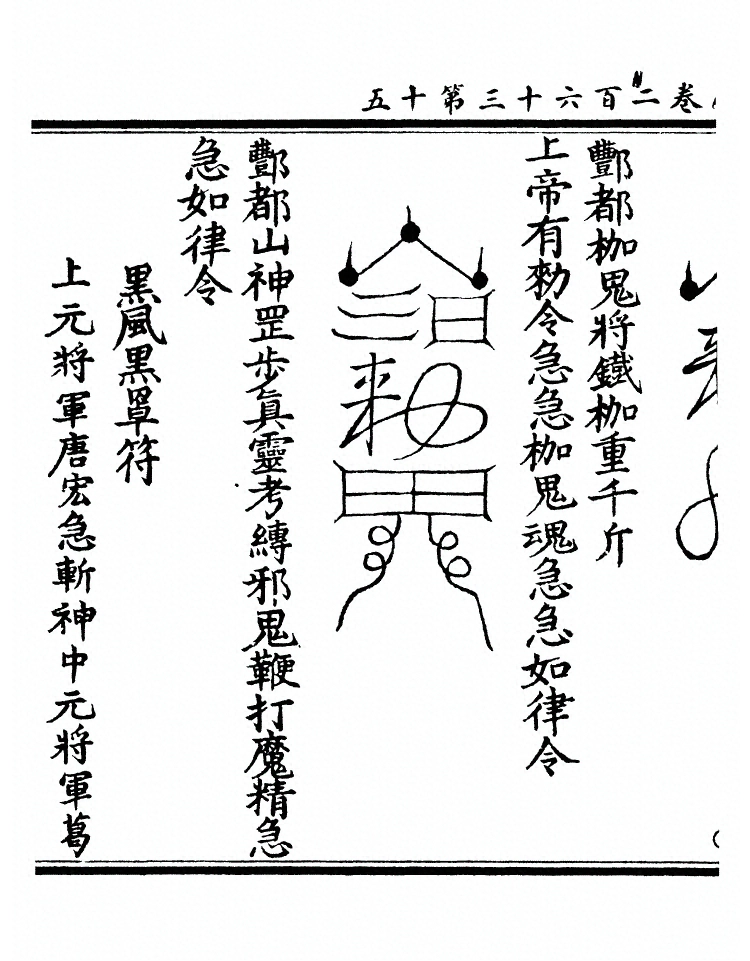 卷二百六十三第十五
酆都枷鬼將鐵枷重千斤
上帝有勑令急急枷鬼魂急急如律令
酆都山神罡步眞靈考縛邪鬼鞭打魔精急
急如律令
黑風黑罩符
上元將軍唐宏急斬神中元將軍葛